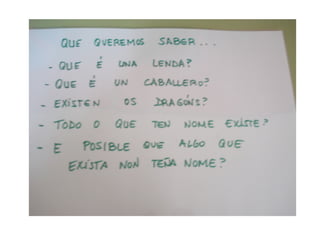 QUE QUEREMOS SABER...
- QUE É UNA LENDA?
- QUE É UN CABALLERO?
- EXISTEN OS DRAGÓNS?
- TODO O QUE TEN NOME EXISTE?
- E POSIBLE QUE ALGO QUE
EXISTA NON TEÑA NOME?